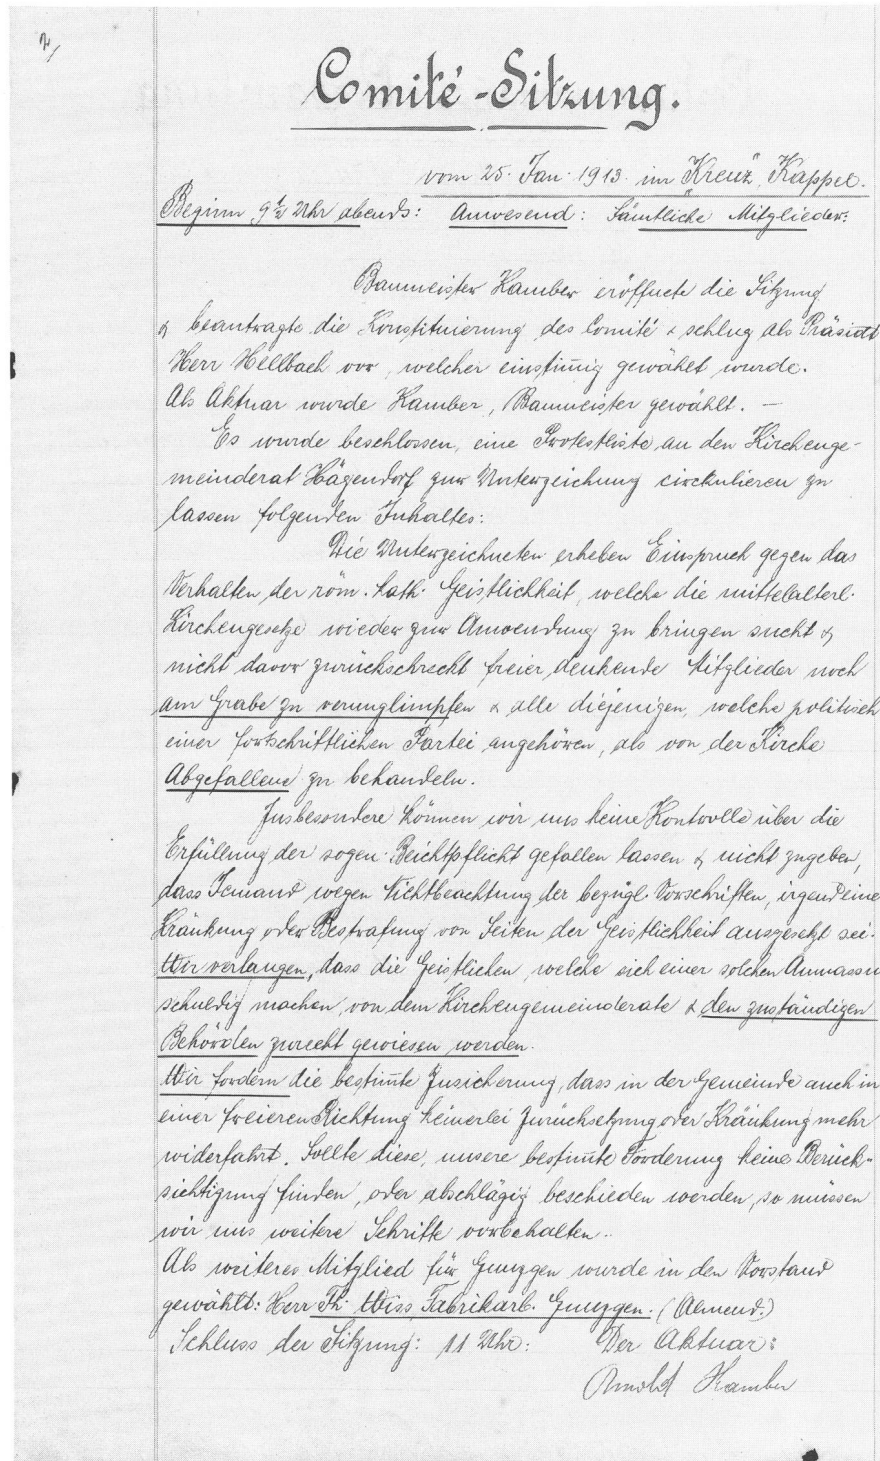 2/
Comité-Sitzung.
vom 25. Jan. 1913. im "Kreuz", Kappel.
Beginn 9½ Uhr abends: Anwesend: Sämtliche Mitglieder:
Baumeister Kamber eröffnete die Sitzung
& beantragte die Konstituierung des Comité & schlug als Präsidt
Herr Hellbach vor, welcher einstim̅ig gewählt wurde.
Als Aktuar wurde Kamber, Baumeister gewählt. —
Es wurde beschlossen, eine Protestliste an den Kirchenge-
meinderat Hägendorf zur Unterzeichung circkulieren zu
lassen folgenden Inhaltes:
Die Unterzeichneten erheben Einspruch gegen das
Verhalten der röm. kath. Geistlichkeit, welche die mittelalterl.
Kirchengesetze wieder zur Anwendung zu bringen sucht &
nicht davor zurückschreckt freier denkende Mitglieder noch
am Grabe zu verunglimpfen & alle diejenigen, welche politisch
einer fortschrittlichen Partei angehören, als von der Kirche
Abgefallene zu behandeln.
Insbesondere können wir uns keine Kontrolle über die
Erfüllung der sogen. Beichtpflicht gefallen lassen & nicht zugeben,
dass Jemand wegen Nichtbeachtung der bezügl. Vorschriften, irgend eine
Kränkung oder Bestrafung von Seiten der Geistlichkeit ausgesetzt sei.
Wir verlangen, dass die Geistlichen, welche sich einer solchen Anmassu
schuldig machen, von dem Kirchengemeinderate & den zuständigen
Behörden zurecht gewiesen werden.
Wir fordern die bestim̅te Zusicherung, dass in der Gemeinde auch in
einer freieren Richtung keinerlei Zurücksetzung oder Kränkung mehr
widerfahrt. Sollte diese, unsere bestim̅te Forderung keine Berück-
sichtigung finden, oder abschlägig beschieden werden, so müssen
wir uns weitere Schritte vorbehalten.
Als weiteres Mitglied für Gunzgen wurde in den Vorstand
gewählt: Herr Th. Wiss, Fabrikarb. Gunzgen. (Almend.)
Schluss der Sitzung: 11 Uhr: Der Aktuar:
Arnold Kamber